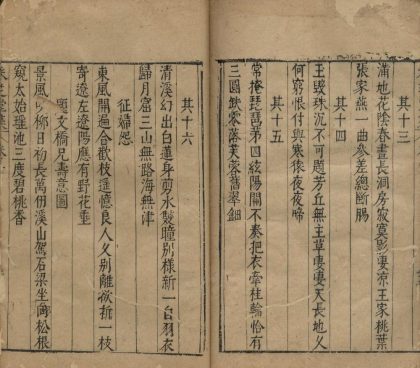 其十三
滿地花陰春晝長洞房寂寞影凄凉王家桃葉
張家燕一曲參差總斷腸
其十四
玉毀珠沉不可題芳丘無主草凄凄天長地久
何窮恨付與寒猿夜夜啼
其十五
常掩琵琶第四絃陽關不奏把衣牽桂輪恰有
三圓缺零落芙蓉舊翠鈿
其十六
清溪幻出白蓮身剪水雙瞳別樣新一自羽衣
歸月窟三山無路海無津
征婦怨
東風開遍合歡枝遥憶良人又別離欲折一枝
寄遼左遼陽應有野花垂
題文橋兄壽意圖
景風日柳日初長萬冊溪山駕石梁坐倚松根
窺太始瑶池三度碧桃香